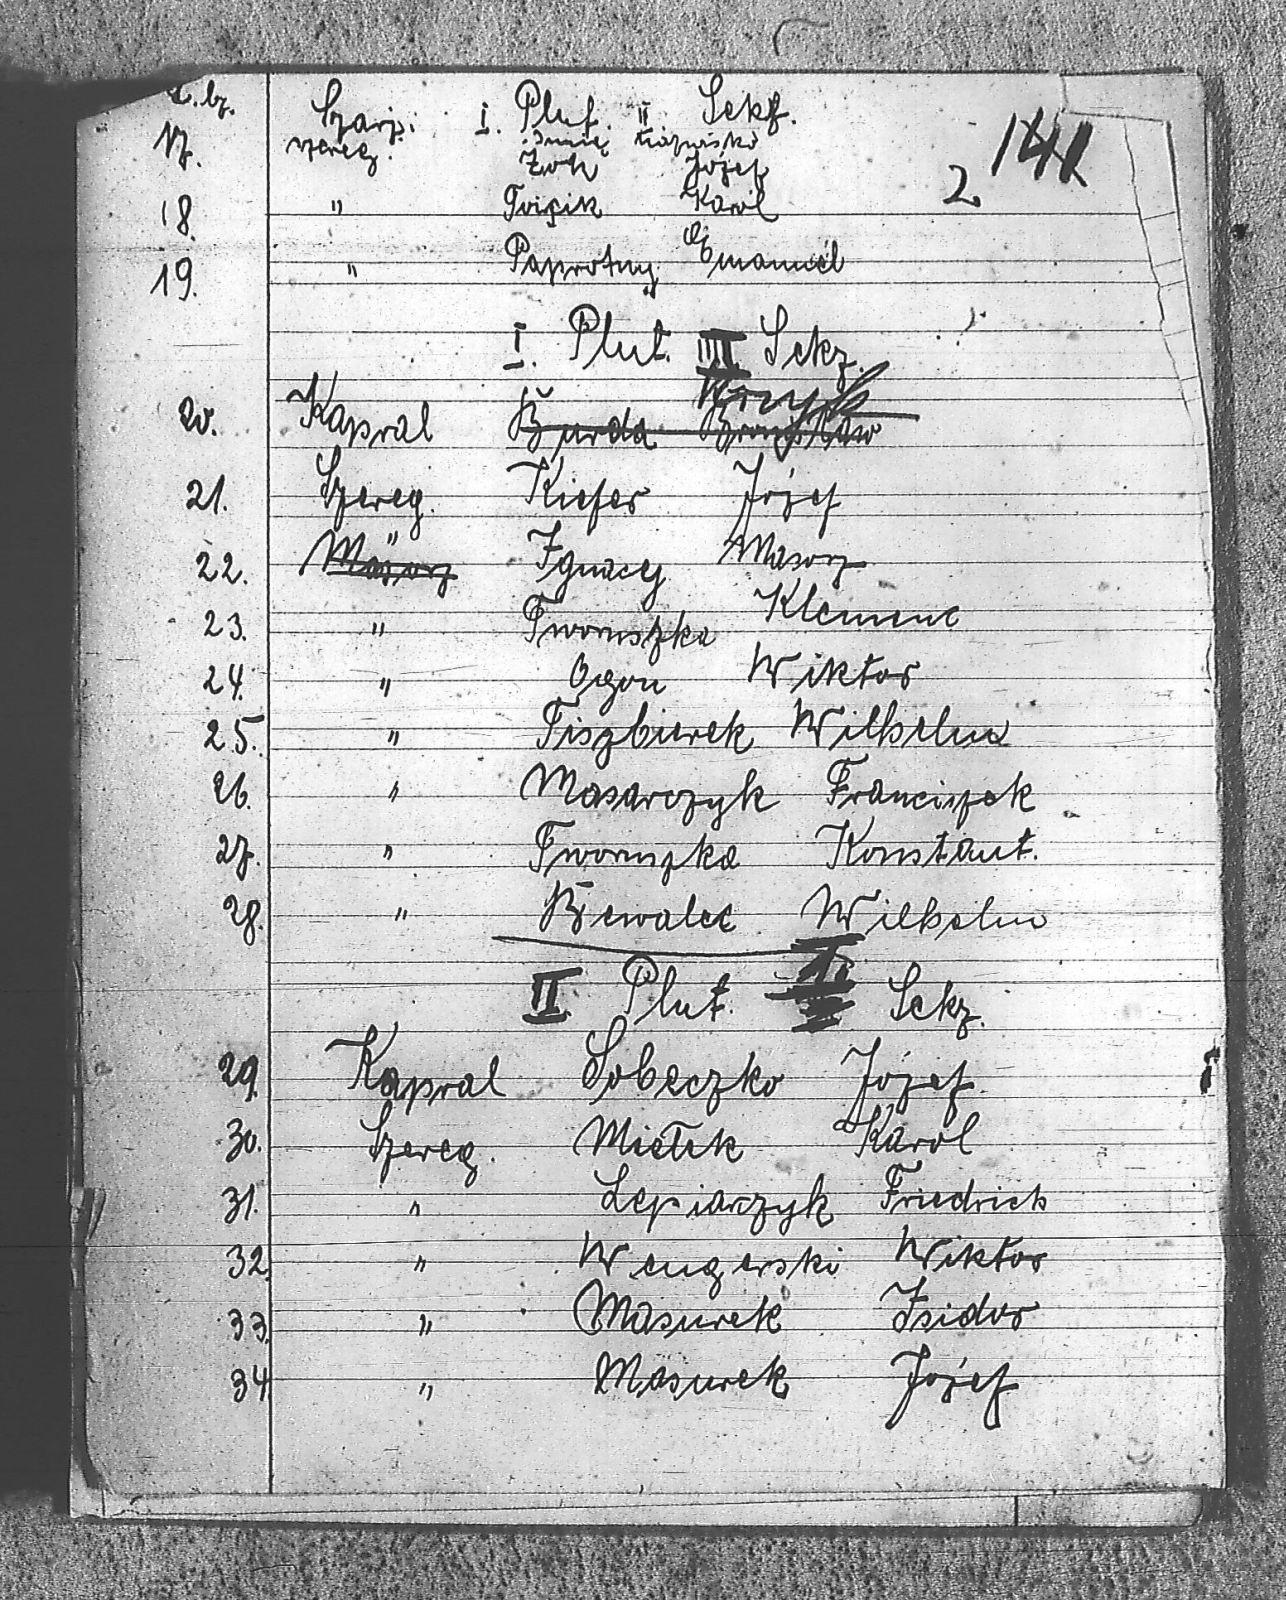 L.bz. Szarż. I. Plut. II Sekz.
Imię Nazwisko
17. szereg. Zoh Józef
2 141
18. " Tvizik Karol
19. " Paprotny Emanuel
I. Plut. III Sekz.
20. Kapral Burda Bronisław
21. Szereg. Kiefer Józef
22. " Ignacy Masorz
23. " Tworuszka Klemenc
24. " Ogon Wiktor
25. " Fiszbierek Wilhelm
26. " Masarczyk Franciszek
27. " Tworuszka Konstant.
28. " Bewalec Wilhelm
II Plut. I. Sekz.
29. Kapral Sobeczko Józef
30. Szereg. Mietek Karol
31. " Lepiarczyk Friedrich
32. " Wengerski Wiktor
33. " Masurek Isidor
34 " Masurek Józef